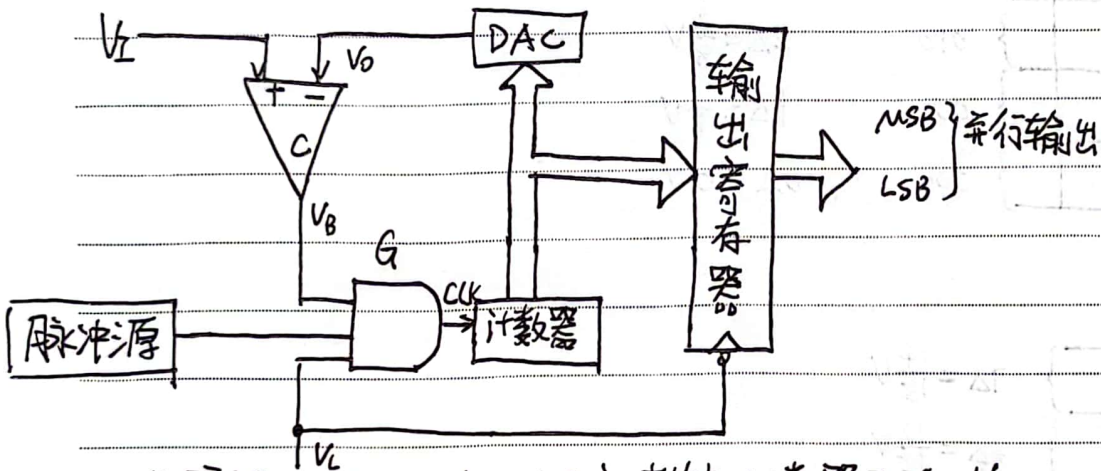 VI
VO
DAC
+ -
C
VB
G
CLK
脉冲源
计数器
VL
输出寄存器
MSB
LSB
并行输出